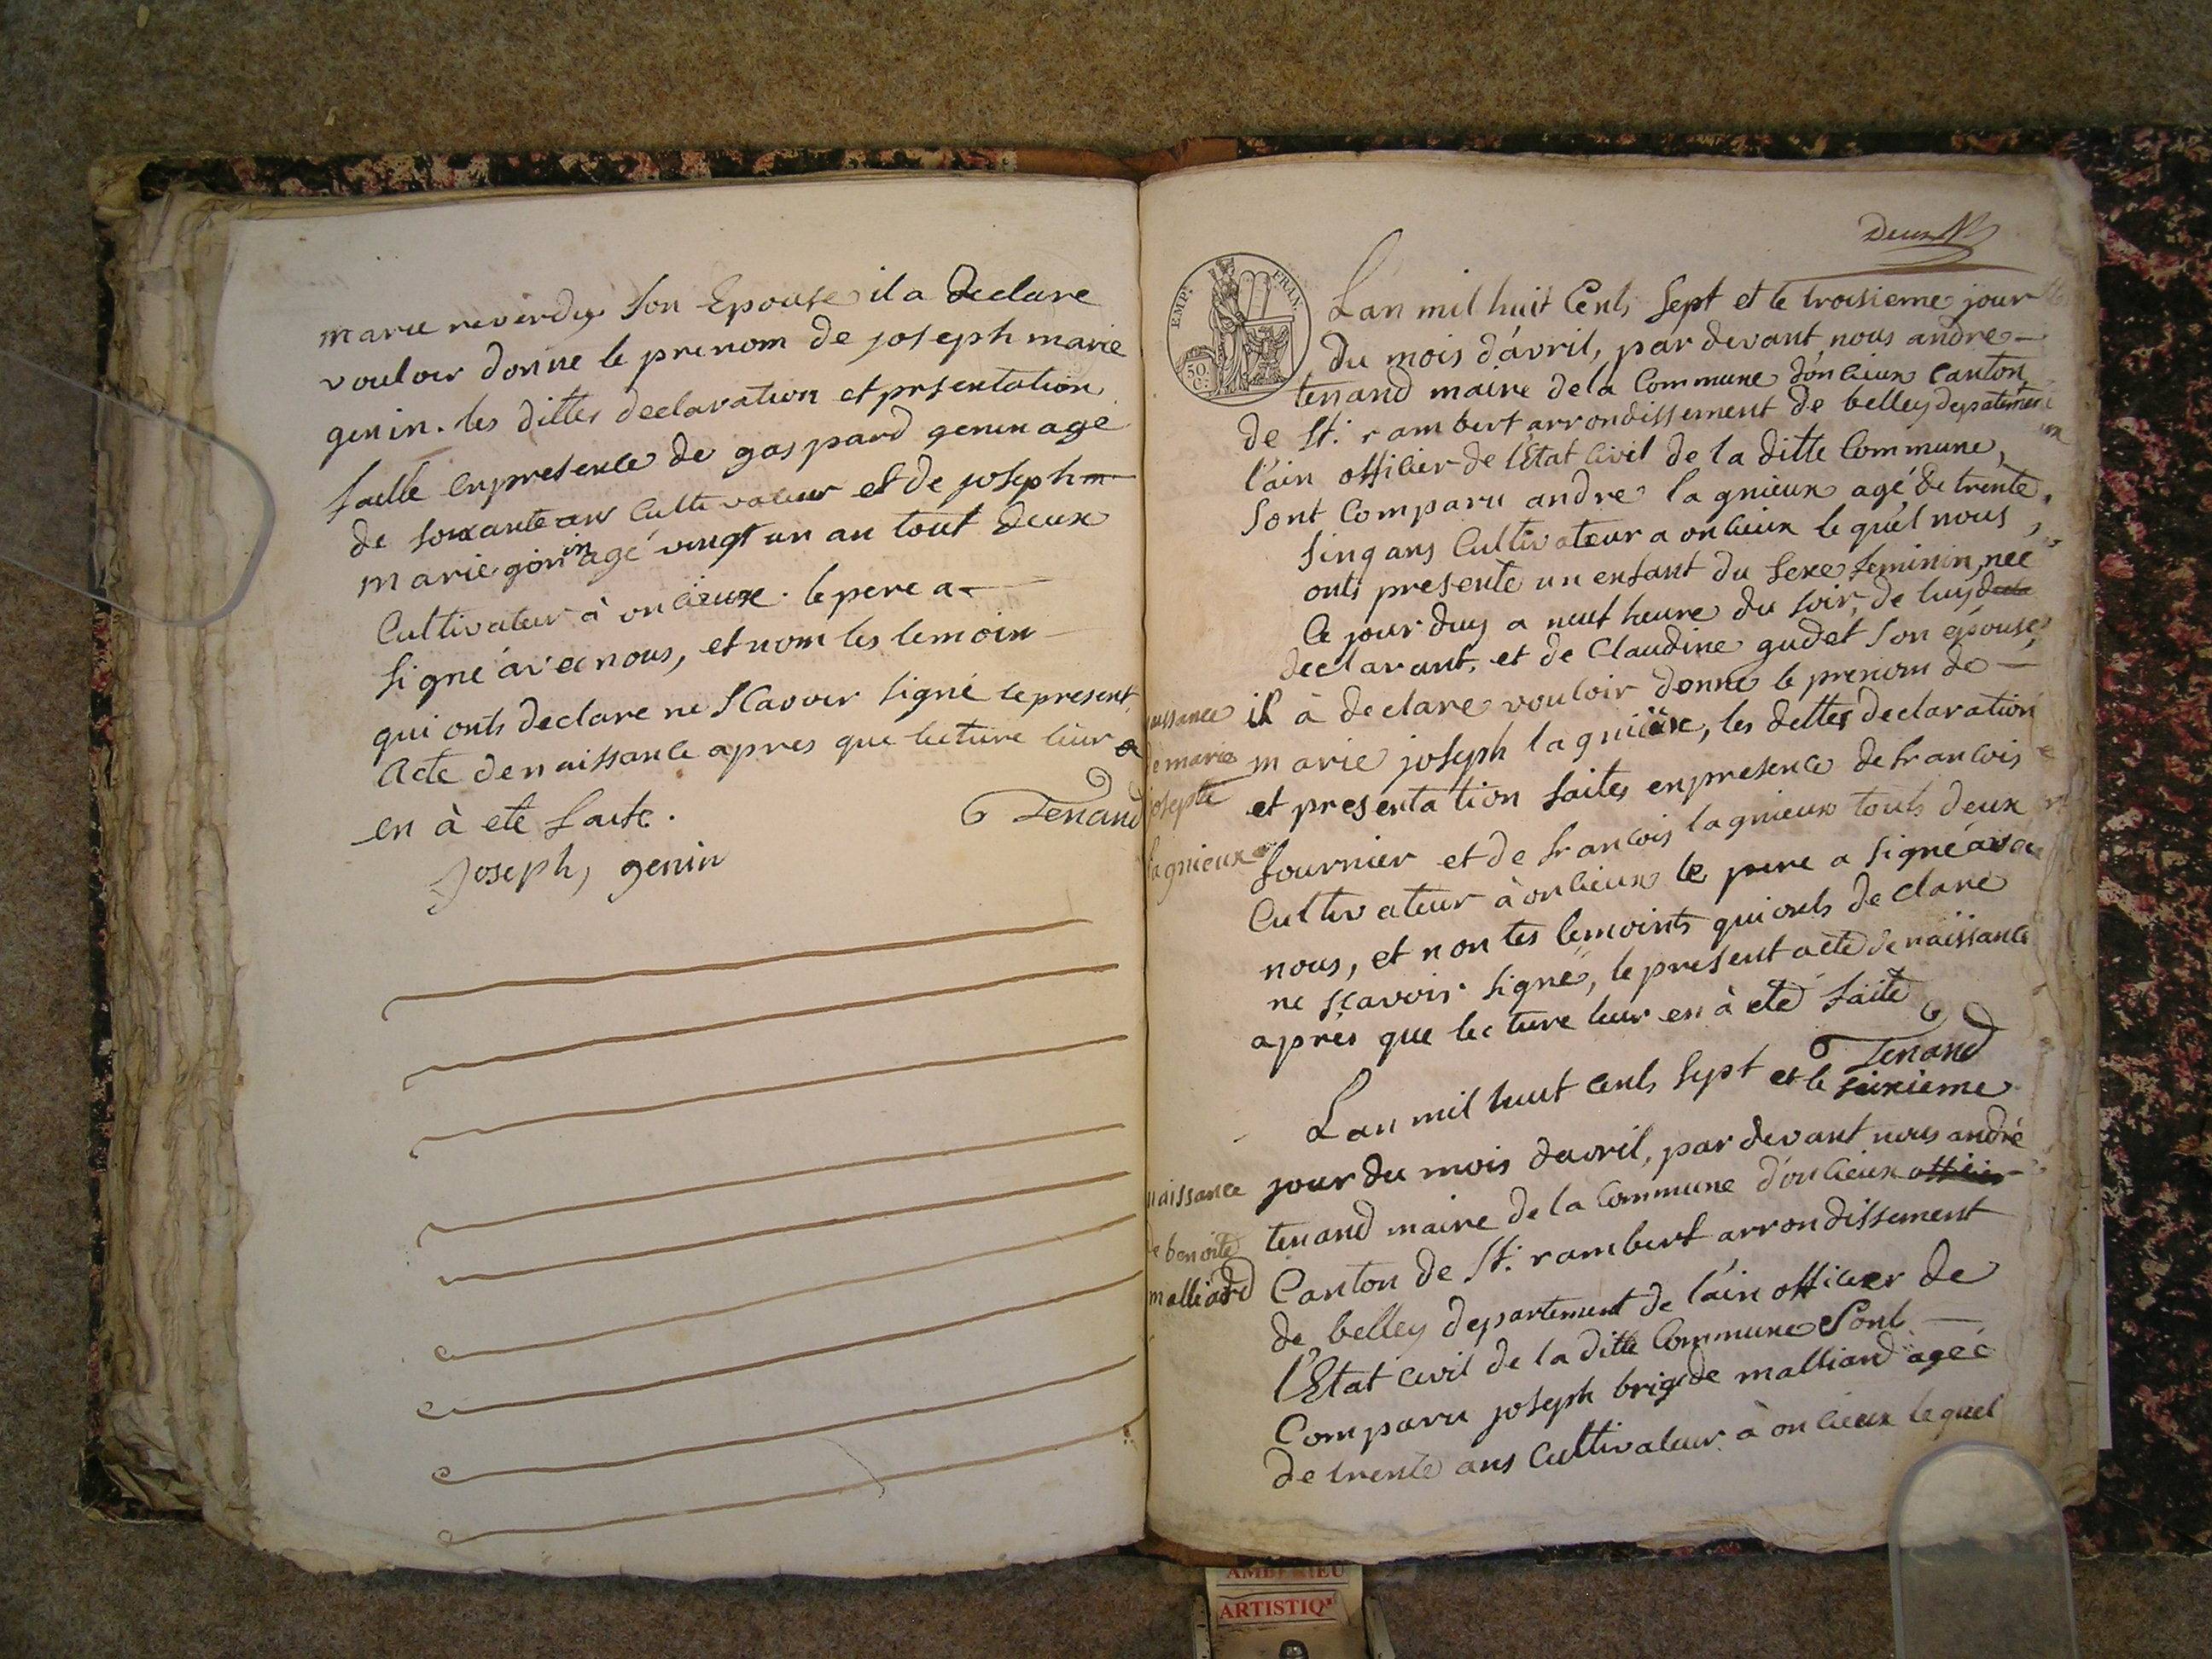 marie reverdy son Epouse il a declare
vouloir donne le prenom de joseph marie
genin. les dittes declaration et prsentation
faitte en presence de gaspard genin agé
de soixante ans Cultivateur et de joseph
marie genin agé vingt un an tout deux
Cultivateur à oncieux. le pere a
signé avec nous, et nom les temoin
qui onts declare ne sCavoir signé le present
Acte de naissance apres que lecture leur
en à ete faite.
Tenand
Joseph, genin
Deux
EMP. FRAN.
50 C.
L'an mil huit Cents sept et le troisieme jour
du mois d'avril, par devant nous andre
tenand maire de la Commune d'oncieux canton
de St. rambert arrondissement de belley departement
l'ain officier de l'Etat Civil de la ditte Commune,
sont Comparu andre lagnieux agé de trente
sinq ans Cultivateur a oncieux le quel nous
onts presenté un enfant du sexe feminin, neé
Ce jour duy a neuf heure du soir, de luy
declarant, et de Claudine gudet son epouse
il à declare vouloir donne le prenom de
marie joseph lagnieux, les dittes declaration
et presentation faites en presence de francois
fournier et de francois lagnieux touts deux
Cultivateur à oncieux le pere a signé avec
nous, et non les temoints qui onts declare
ne sCavoir signé, le present acte de naissance
après que lecture leur en à eté faite
Tenand
naissance
de marie
josephe
lagnieux
L'an mil huit cents sept et le sixieme
jour du mois d'avril, par devant nous andré
tenand maire de la Commune d'oncieux officier
Canton de St. rambert arrondissement
de belley departement de l'ain officier de
l'Etat civil de la ditte Commune sont
Comparu joseph brigide malliard ageé
de trente ans Cultivateur à oncieux le quel
naissance
de benoite
malliard
AMBERIEU
ARTISTIQ